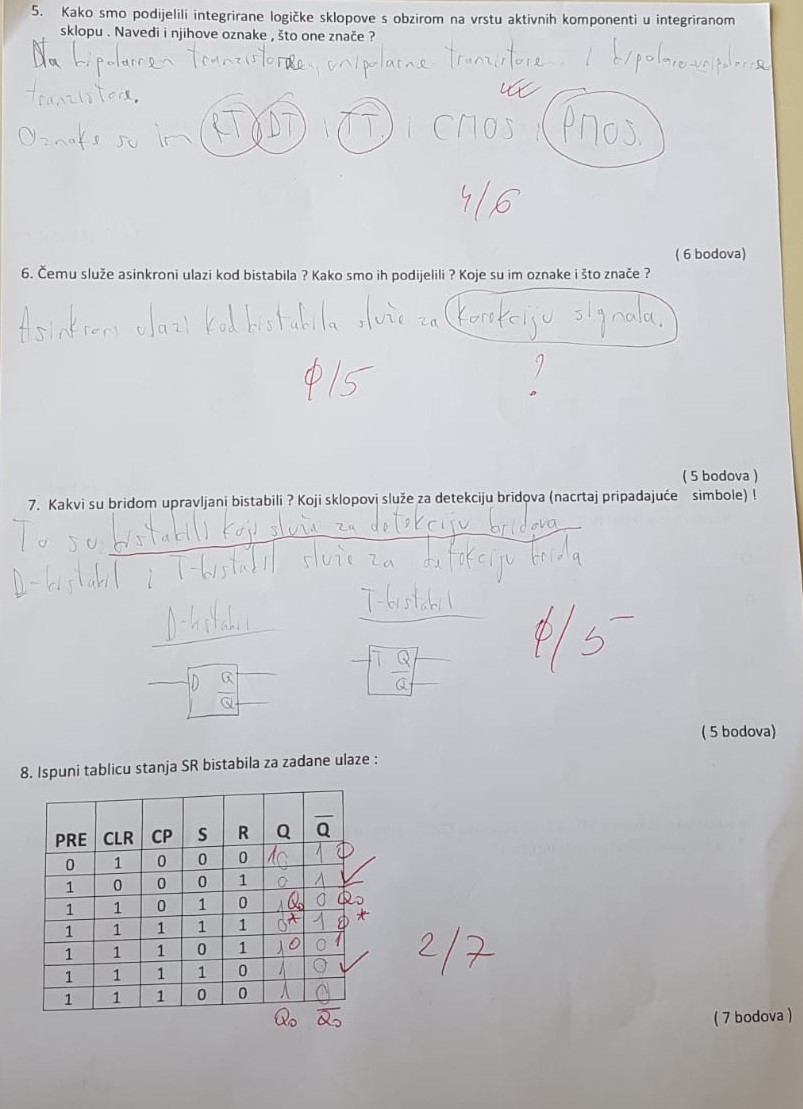 5. Kako smo podijelili integrirane logičke sklopove s obzirom na vrstu aktivnih komponenti u integriranom
sklopu . Navedi i njihove oznake , što one znače ?
Na bipolarnen tranzistore, unipolarne tranzistore i bipolarno-unipolarne
tranzistore.
Oznake su im RT DT i TT i CMOS i PMOS.
4/6
( 6 bodova)
6. Čemu služe asinkroni ulazi kod bistabila ? Kako smo ih podijelili ? Koje su im oznake i što znače ?
Asinkroni ulazi kod bistabila služe za korekciju signala.
0/5 ?
( 5 bodova )
7. Kakvi su bridom upravljani bistabili ? Koji sklopovi služe za detekciju bridova (nacrtaj pripadajuće simbole) !
To su bistabili koji služe za detekciju bridova
D-bistabil i T-bistabil služe za detekciju brida
D-bistabil T-bistabil
D Q Q̅ T Q Q̅
0/5
( 5 bodova)
8. Ispuni tablicu stanja SR bistabila za zadane ulaze :
PRE CLR CP S R Q Q̅
0 1 0 0 0 1 0 1 0
1 0 0 0 1 0 1
1 1 0 1 0 1 Q₀ 0 Q₀
1 1 1 1 1 0* 1 0*
1 1 1 0 1 1 0 0 1
1 1 1 1 0 1 0
1 1 1 0 0 1 0
Q₀ Q̅₀
2/7
( 7 bodova )